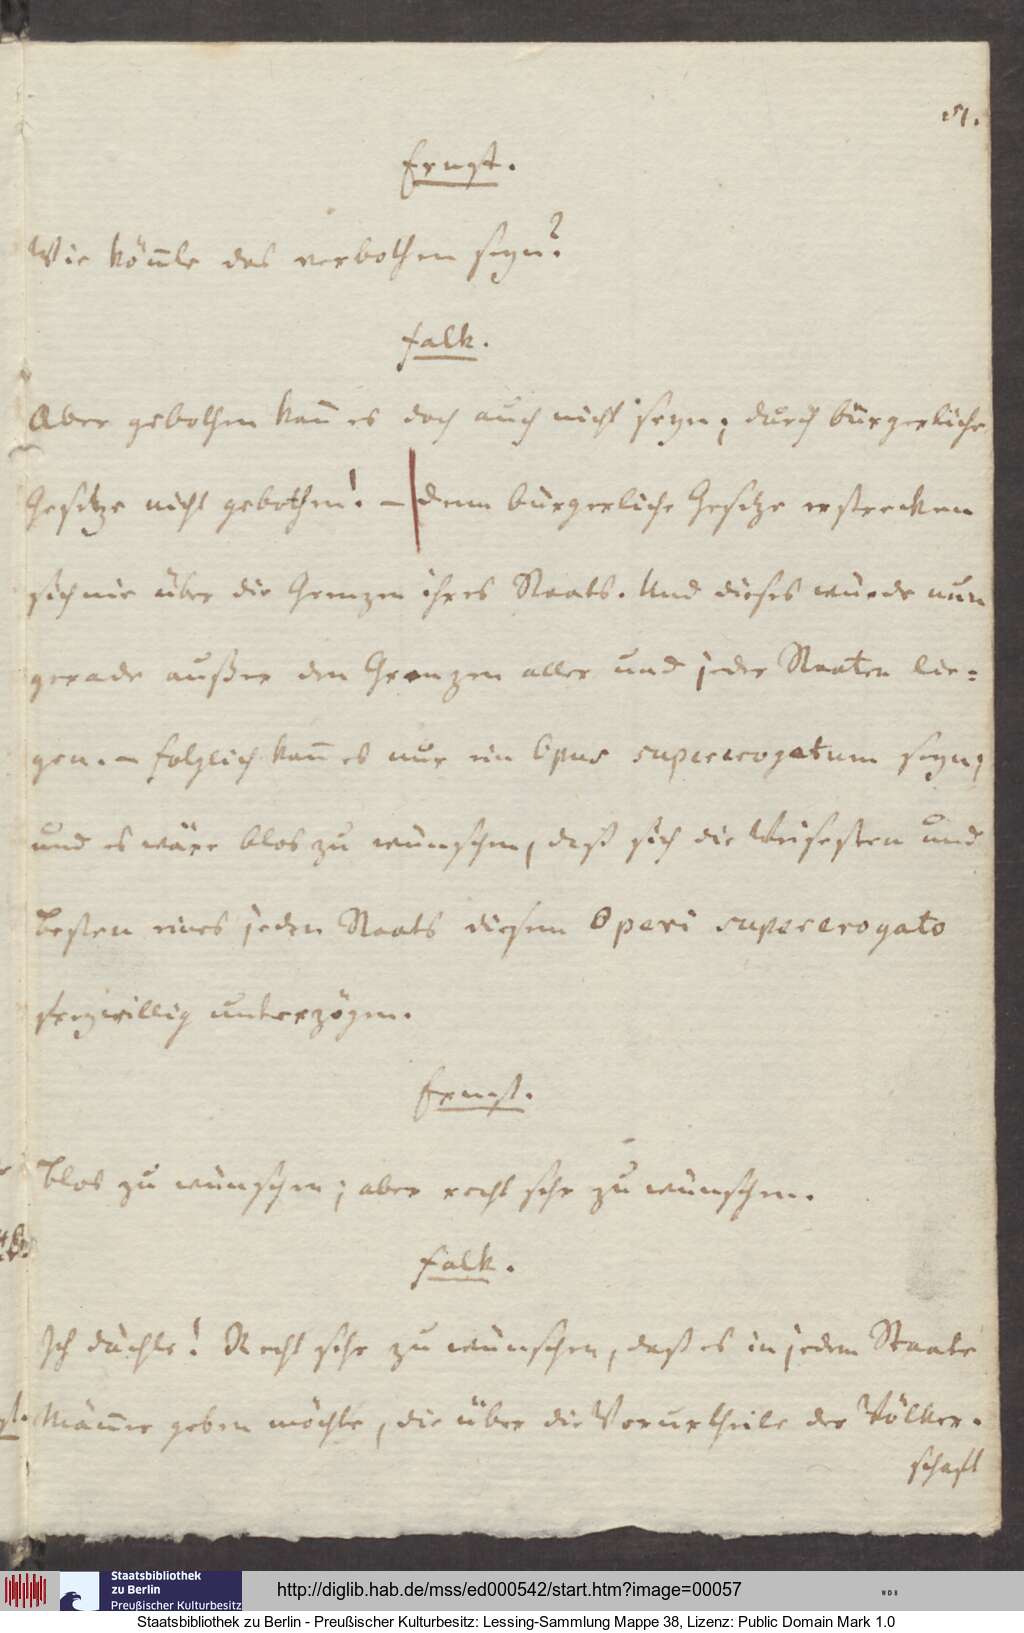 51.
Ernst.
Wie kön̄te das verbothen seyn?
Falk.
Aber gebothen kan̄ es doch auch nicht seyn; durch bürgerliche
Gesetze nicht gebothen! — denn bürgerliche Gesetze erstrecken
sich nie über die Grenzen ihres Staats. Und dieses würde nun
gerade außer den Grenzen aller und jeder Staaten lie=
gen. – Folglich kan̄ es nur ein Opus supererogatum seyn;
und es wäre blos zu wünschen, daß sich die Weisesten und
Besten eines jeden Staats diesem Operi supererogato
freywillig unterzögen.
Ernst.
Blos zu wünschen; aber recht sehr zu wünschen.
Falk.
Ich dächte! Recht sehr zu wünschen, daß es in jedem Staate
Män̄er geben möchte, die über die Vorurtheile der Völker-
schaft
Staatsbibliothek
zu Berlin
Preußischer Kulturbesitz
http://diglib.hab.de/mss/ed000542/start.htm?image=00057
WDB
Staatsbibliothek zu Berlin - Preußischer Kulturbesitz: Lessing-Sammlung Mappe 38, Lizenz: Public Domain Mark 1.0